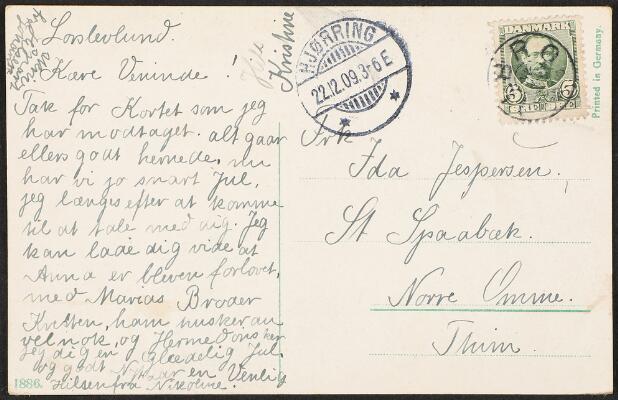 Lorslevlund.
Kære Veninde!
Tak for Kortet som jeg
har modtaget. alt gaar
ellers godt hernede, nu
har vi jo snart Jul,
jeg længes efter at komme
til at tale med dig. Jeg
kan lade dig vide at
Anna er bleven forlovet,
med Marias Broder
Kristen, ham husker du
vel nok, og Hermed ønsker
jeg dig en Glædelig Jul
og godt Nytaar en Venlig
Hilsen fra Nikoline.
Kristine
HJØRRING
22.12.09.3-6 E
DANMARK
5 5
Printed in Germany.
Frk
Ida Jespersen.
St Spaabæk.
Norre Omme.
Thim.
1886.